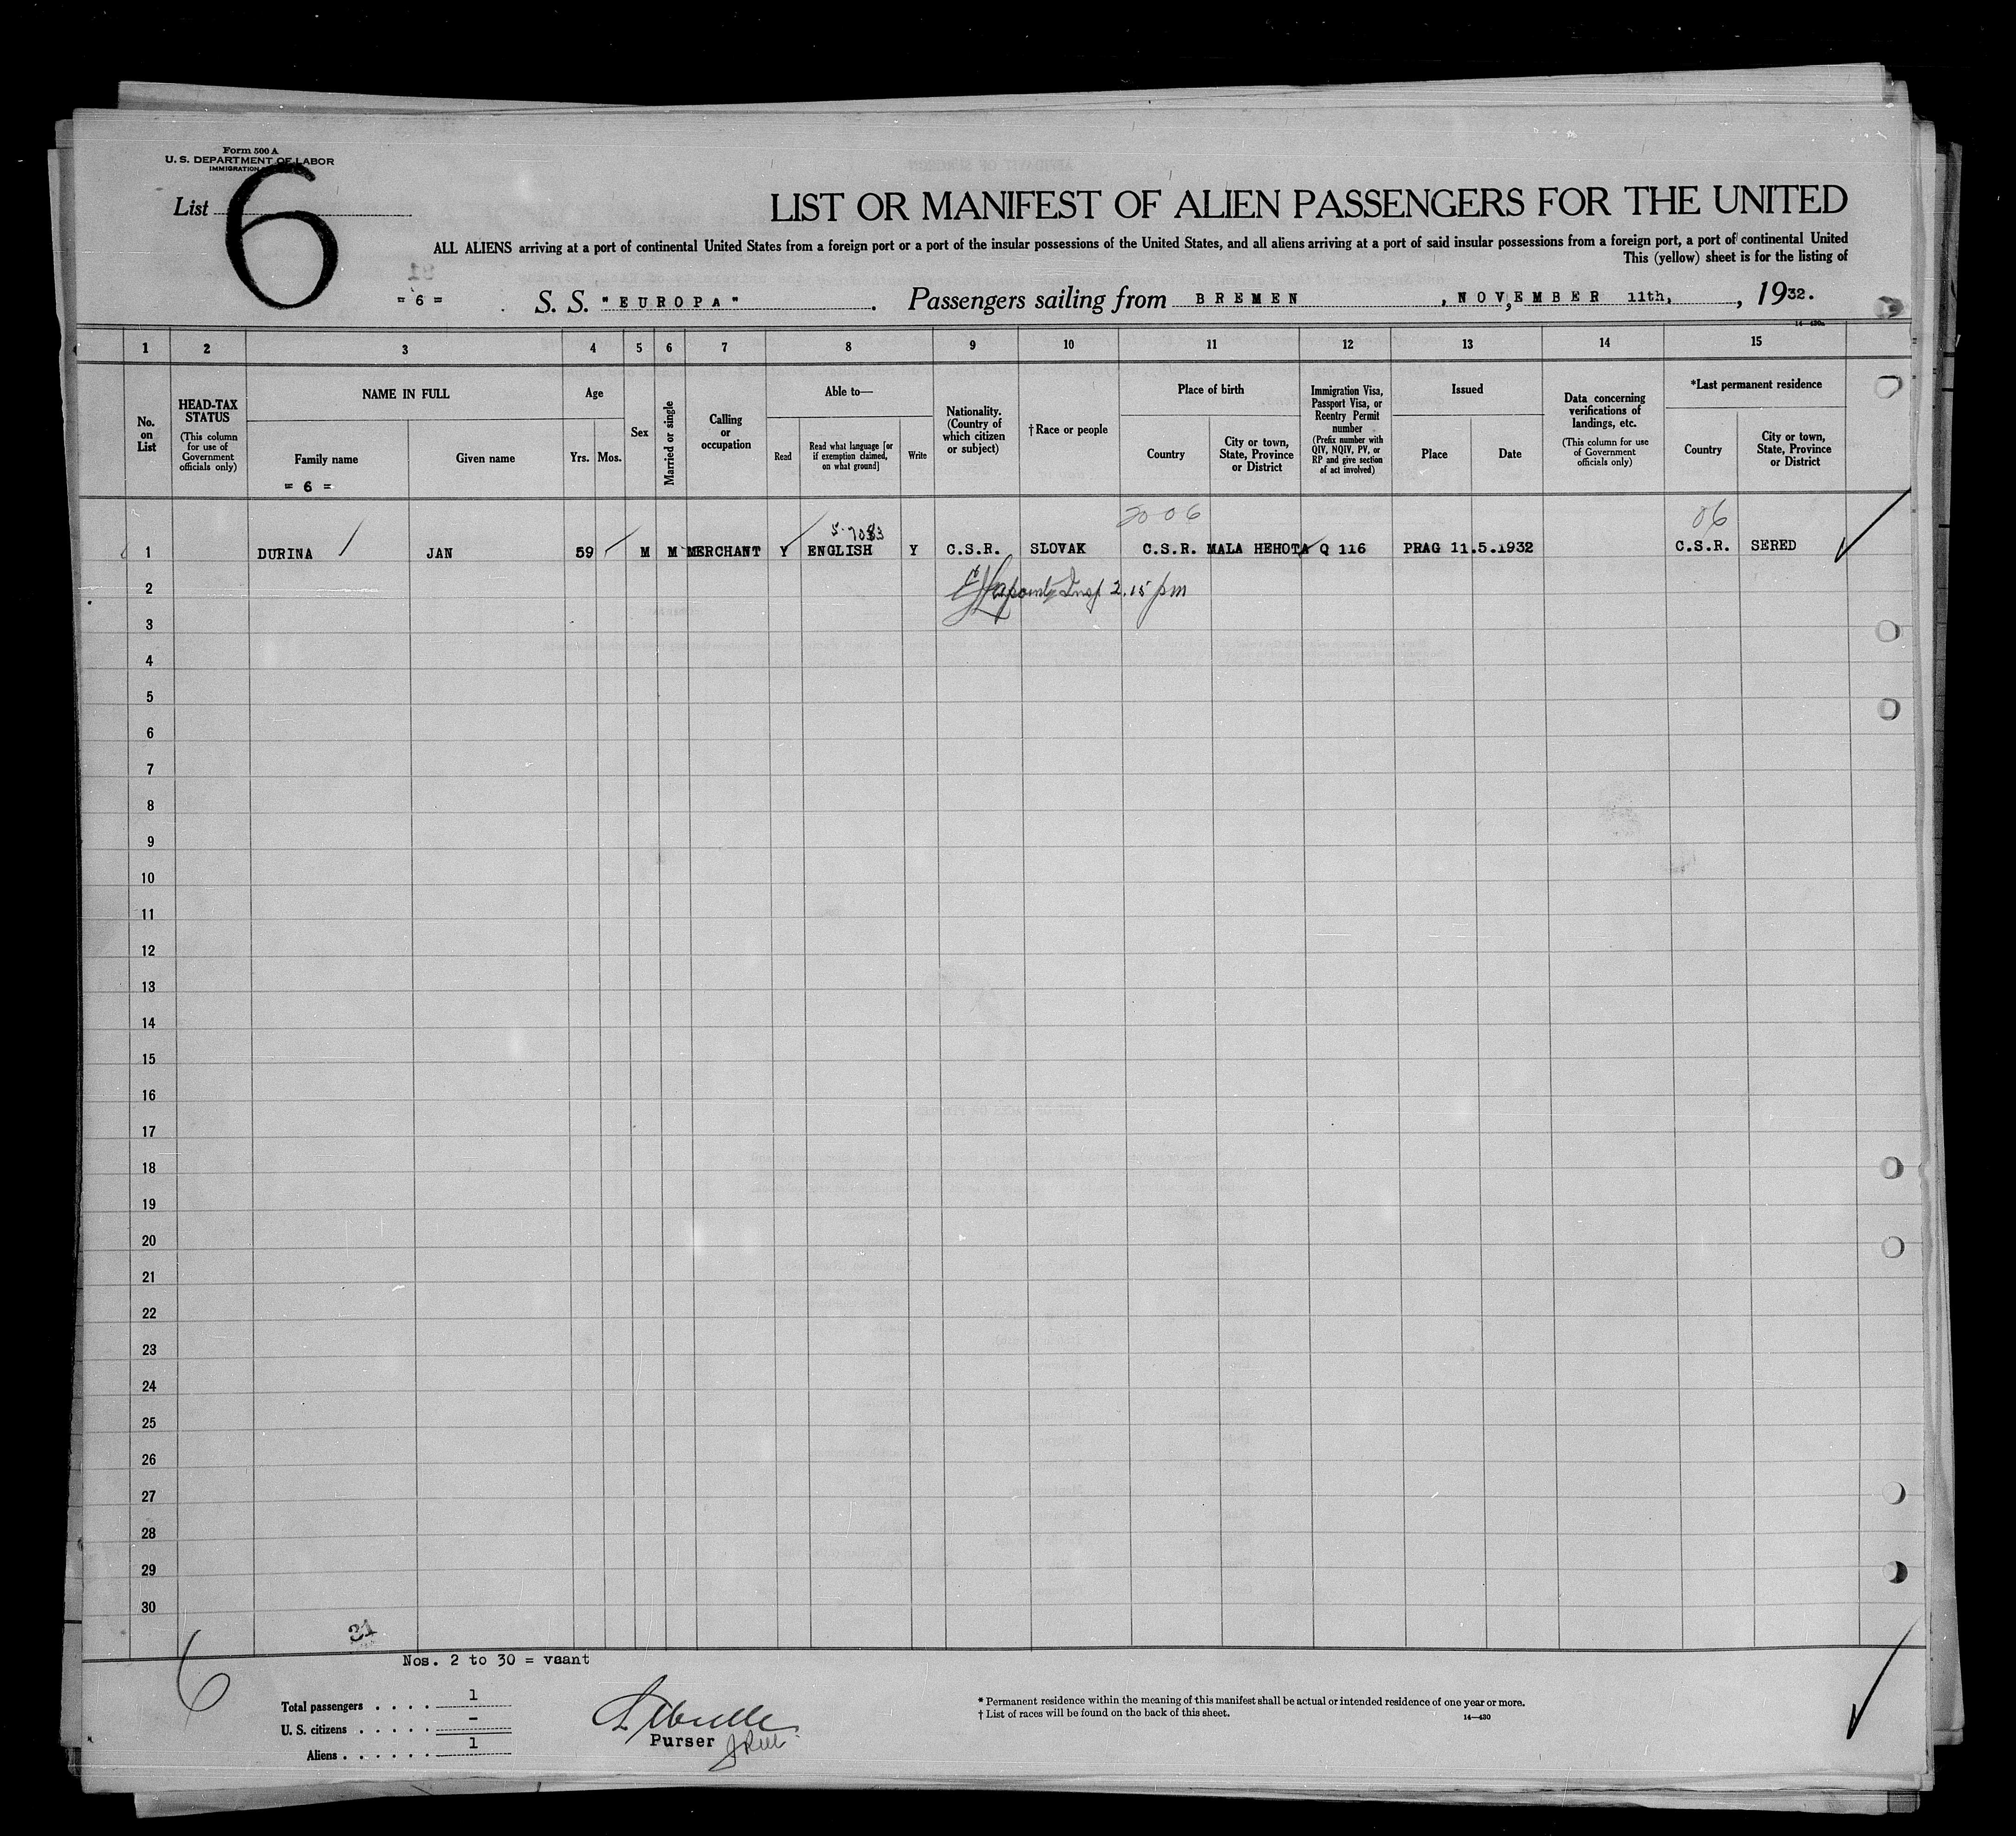 Form 500 A
U. S. DEPARTMENT OF LABOR
IMMIGRATION
List 6
LIST OR MANIFEST OF ALIEN PASSENGERS FOR THE UNITED
ALL ALIENS arriving at a port of continental United States from a foreign port or a port of the insular possessions of the United States, and all aliens arriving at a port of said insular possessions from a foreign port, a port of continental United
This (yellow) sheet is for the listing of
= 6 = S. S. "EUROPA". Passengers sailing from BREMEN, NOVEMBER 11th, , 1932.
1 2 3 4 5 6 7 8 9 10 11 12 13 14 15
No. on List
HEAD-TAX STATUS
(This column for use of Government officials only)
NAME IN FULL
Family name
Given name
= 6 =
Age
Yrs. Mos.
Sex
Married or single
Calling or occupation
Able to—
Read
Read what language [or if exemption claimed, on what ground]
Write
Nationality. (Country of which citizen or subject)
†Race or people
Place of birth
Country
City or town, State, Province or District
Immigration Visa, Passport Visa, or Reentry Permit number
(Prefix number with QIV, NQIV, PV, or RP and give section of act involved)
Issued
Place
Date
Data concerning verifications of landings, etc.
(This column for use of Government officials only)
*Last permanent residence
Country
City or town, State, Province or District
2006 06
1 DURINA JAN 59 M M MERCHANT Y ENGLISH Y C.S.R. SLOVAK C.S.R. MALA HEHOTA Q 116 PRAG 11.5.1932 C.S.R. SERED
2 Insp 2.15 pm
3
4
5
6
7
8
9
10
11
12
13
14
15
16
17
18
19
20
21
22
23
24
25
26
27
28
29
30
31
Nos. 2 to 30 = vaant
6
Total passengers . . . . 1
U. S. citizens . . . . . –
Aliens . . . . . . 1
Purser
* Permanent residence within the meaning of this manifest shall be actual or intended residence of one year or more.
† List of races will be found on the back of this sheet.
14—430